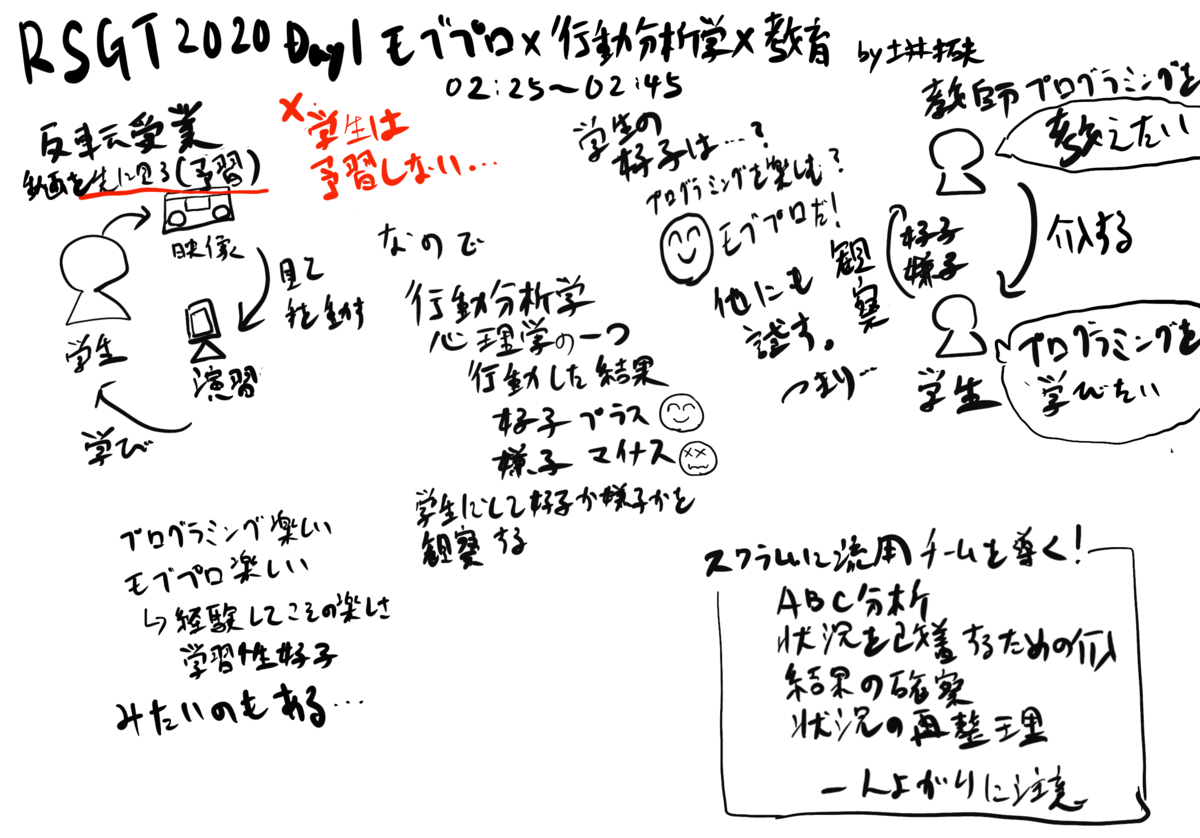 RSGT2020 Day1 モブプロ×行動分析学×教育 by 土井拓
02:25〜02:45
反転受業
動画を先に見る(予習)
映像
学生
見て
手動かす
演習
学び
×学生は
予習しない…
なので
行動分析学
心理学の一つ
行動した結果
好子 プラス
嫌子 マイナス
学生にして好子か嫌子かを
観察する
学生の
好子は…?
プログラミングを楽しむ?
モブプロだ!
他にも
試す。
観察
つまり…
教師
プログラミングを
教えたい
好子
嫌子
介入する
学生
プログラミングを
学びたい
プログラミング楽しい
モブプロ楽しい
↳経験してこその楽しさ
学習性好子
みたいのもある…
スクラムに流用 チームを導く!
ABC分析
状況を改善するための介入
結果の確察
状況の再整理
一人よがりに注意